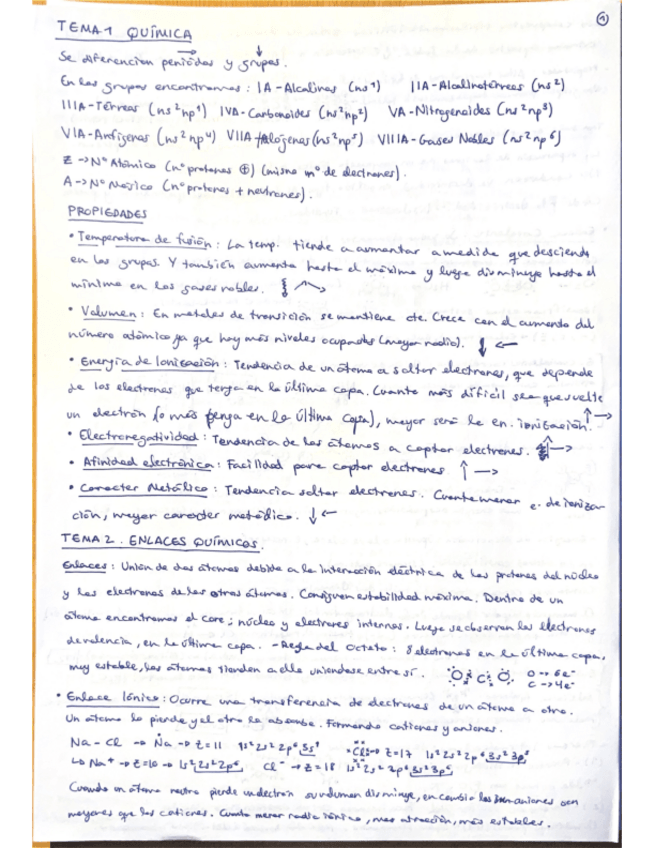 1
TEMA 1 QUÍMICA
Se diferencian periodos y grupos.
En los grupos encontramos: IA-Alcalinos (ns¹) IIA-Alcalinotérreos (ns²)
IIIA-Térreos (ns²np¹) IVA-Carbonoides (ns²np²) VA-Nitrogenoides (ns²np³)
VIA-Anfígenos (ns²np⁴) VIIA Halógenos (ns²np⁵) VIIIA-Gases Nobles (ns²np⁶)
Z → Nº Atómico (nº protones ⊕) (mismo nº de electrones).
A → Nº Másico (nº protones + neutrones).
PROPIEDADES
• Temperatura de fusión: La temp. tiende a aumentar a medida que desciende
en los grupos. Y también aumenta hasta el máximo y luego disminuye hasta el
mínimo en los gases nobles.
• Volumen: En metales de transición se mantiene cte. Crece con el aumento del
número atómico ya que hay más niveles ocupados (mayor radio). ↓ ←
• Energía de Ionización: Tendencia de un átomo a soltar electrones, que depende
de los electrones que tenga en la última capa. Cuanto más difícil sea que suelte
un electrón (o más tenga en la última capa), mayor será la en. ionización. ↑ →
• Electronegatividad: Tendencia de los átomos a captar electrones. ↑ →
• Afinidad electrónica: Facilidad para captar electrones ↑ →
• Caracter Metálico: Tendencia soltar electrones. Cuanto menor e. de ioniza-
ción, mayor caracter metálico. ↓ ←
TEMA 2. ENLACES QUÍMICOS.
Enlaces: Unión de dos átomos debido a la interacción eléctrica de los protones del núcleo
y los electrones de los otros átomos. Consiguen estabilidad máxima. Dentro de un
átomo encontramos el core; núcleo y electrones internos. Luego se observan los electrones
de valencia, en la última capa. - Regla del Octeto: 8 electrones en la última capa,
muy estable, los átomos tienden a ello uniendose entre sí. O C O O → 6e⁻ C → 4e⁻
• Enlace Iónico: Ocurre una transferencia de electrones de un átomo a otro.
Un átomo lo pierde y el otro lo absorbe. Formando cationes y aniones.
Na - Cl → Na → Z=11 1s²2s²2p⁶3s¹ Cl → Z=17 1s²2s²2p⁶3s²3p⁵
↳ Na⁺ → Z=10 → 1s²2s²2p⁶ Cl⁻ → Z=18 1s²2s²2p⁶3s²3p⁶
Cuando un átomo neutro pierde un electron su volumen disminuye, en cambio los aniones son
mayores que los cationes. Cuanto menor radio iónico, mas atracción, más estables.